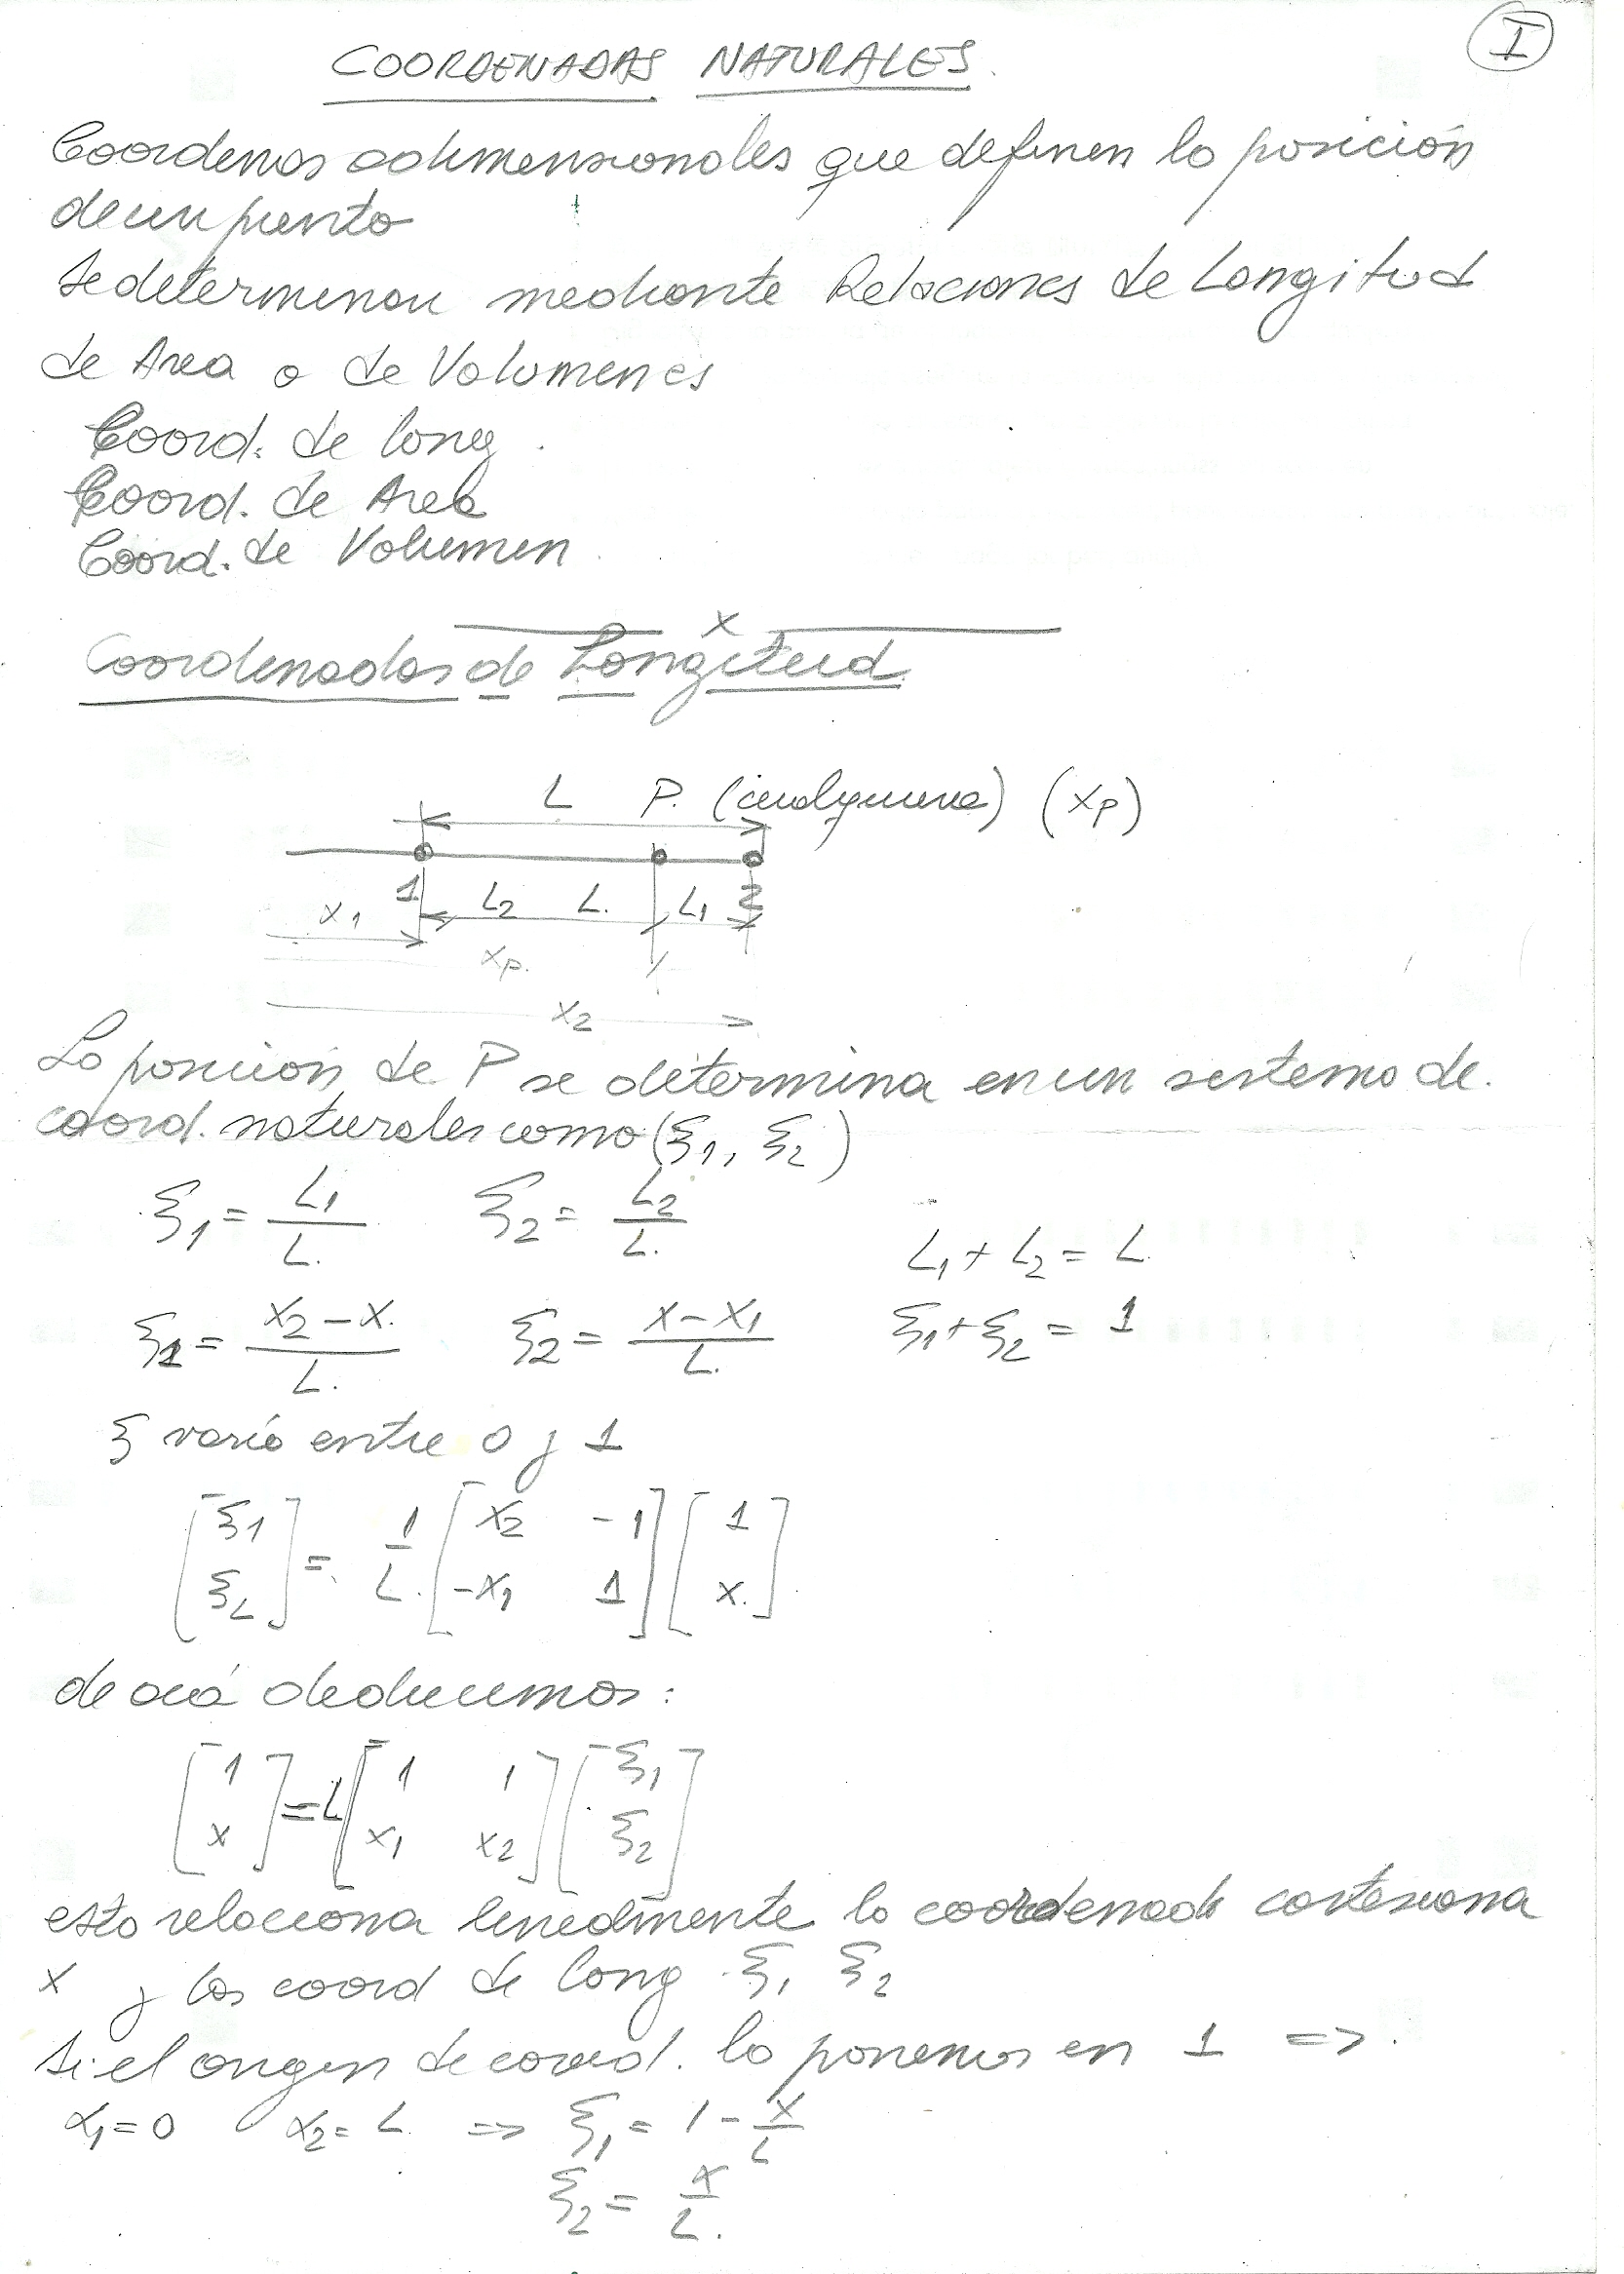 I
COORDENADAS NATURALES.
Coordenas adimensionales que definen la posición
de un punto
Se determinan mediante Relaciones de Longitud
de Area o de Volumenes
Coord. de long.
Coord. de Area
Coord. de Volumen
x
Coordenadas de Longitud
L P. (cualquiera) (xp)
1 L2 L. L1 2
x1
xp.
x2
La posicion de P se determina en un sistema de.
coord. naturales como (ξ1, ξ2)
ξ1 = L1/L. ξ2 = L2/L.
L1 + L2 = L
ξ1 = (x2 - x.)/L. ξ2 = (x - x1)/L. ξ1 + ξ2 = 1
ξ varía entre 0 y 1
[ξ1 ξ2] = 1/L. [x2 -1 -x1 1] [1 x.]
de acá deducimos:
[1 x] = L [1 1 x1 x2] [ξ1 ξ2]
esto relaciona linealmente la coordenada cartesiana
x y las coord de long ξ1 ξ2
Si el origen de coord. lo ponemos en 1 =>.
x1 = 0 x2 = L => ξ1 = 1 - x/L
ξ2 = x/L.